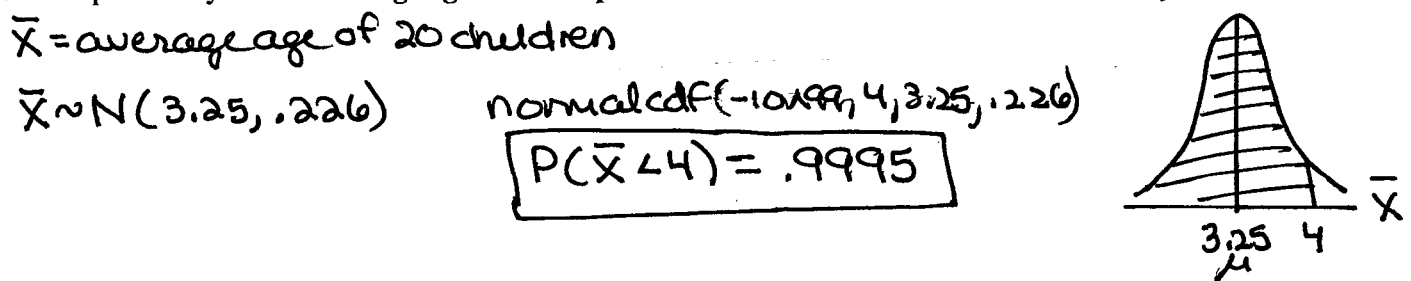 X̄ = average age of 20 children
X̄ ~ N(3.25, .226)
normalcdf(-10^99, 4, 3.25, .226)
P(X̄ < 4) = .9995
X̄
3.25 4
μ